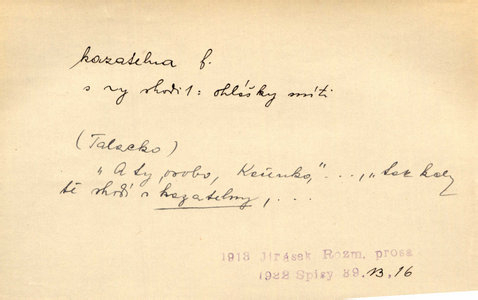 kazatelna f.
s ny shodit: ohlášky míti
(Talacko)
„A ty, osobo, Kačenko," ..., „tak
tě shodí s kazatelny, ...
1913 Jirásek Rozm. prosa
1922 Spisy 39. 13, 16